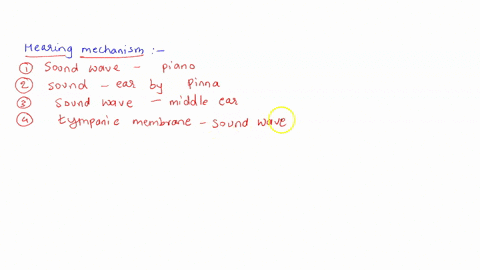 Hearing mechanism :-
① Sound wave - piano
② sound - ear by pinna
③ sound wave - middle ear
④ tympanic membrane - sound wave